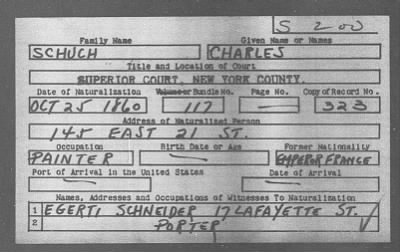 S 200
Family Name Given Name or Names
SCHUCH CHARLES
Title and Location of Court
SUPERIOR COURT, NEW YORK COUNTY.
Date of Naturalization Volume or Bundle No. Page No. Copy of Record No.
OCT 25 1860 117 — 323
Address of Naturalized Person
145 EAST 21 ST.
Occupation Birth Date or Age Former Nationality
PAINTER — EMPEROR FRANCE
Port of Arrival in the United States Date of Arrival
— —
Names, Addresses and Occupations of Witnesses To Naturalization
1 EGERTI SCHNEIDER 17 LAFAYETTE ST.
2 PORTER